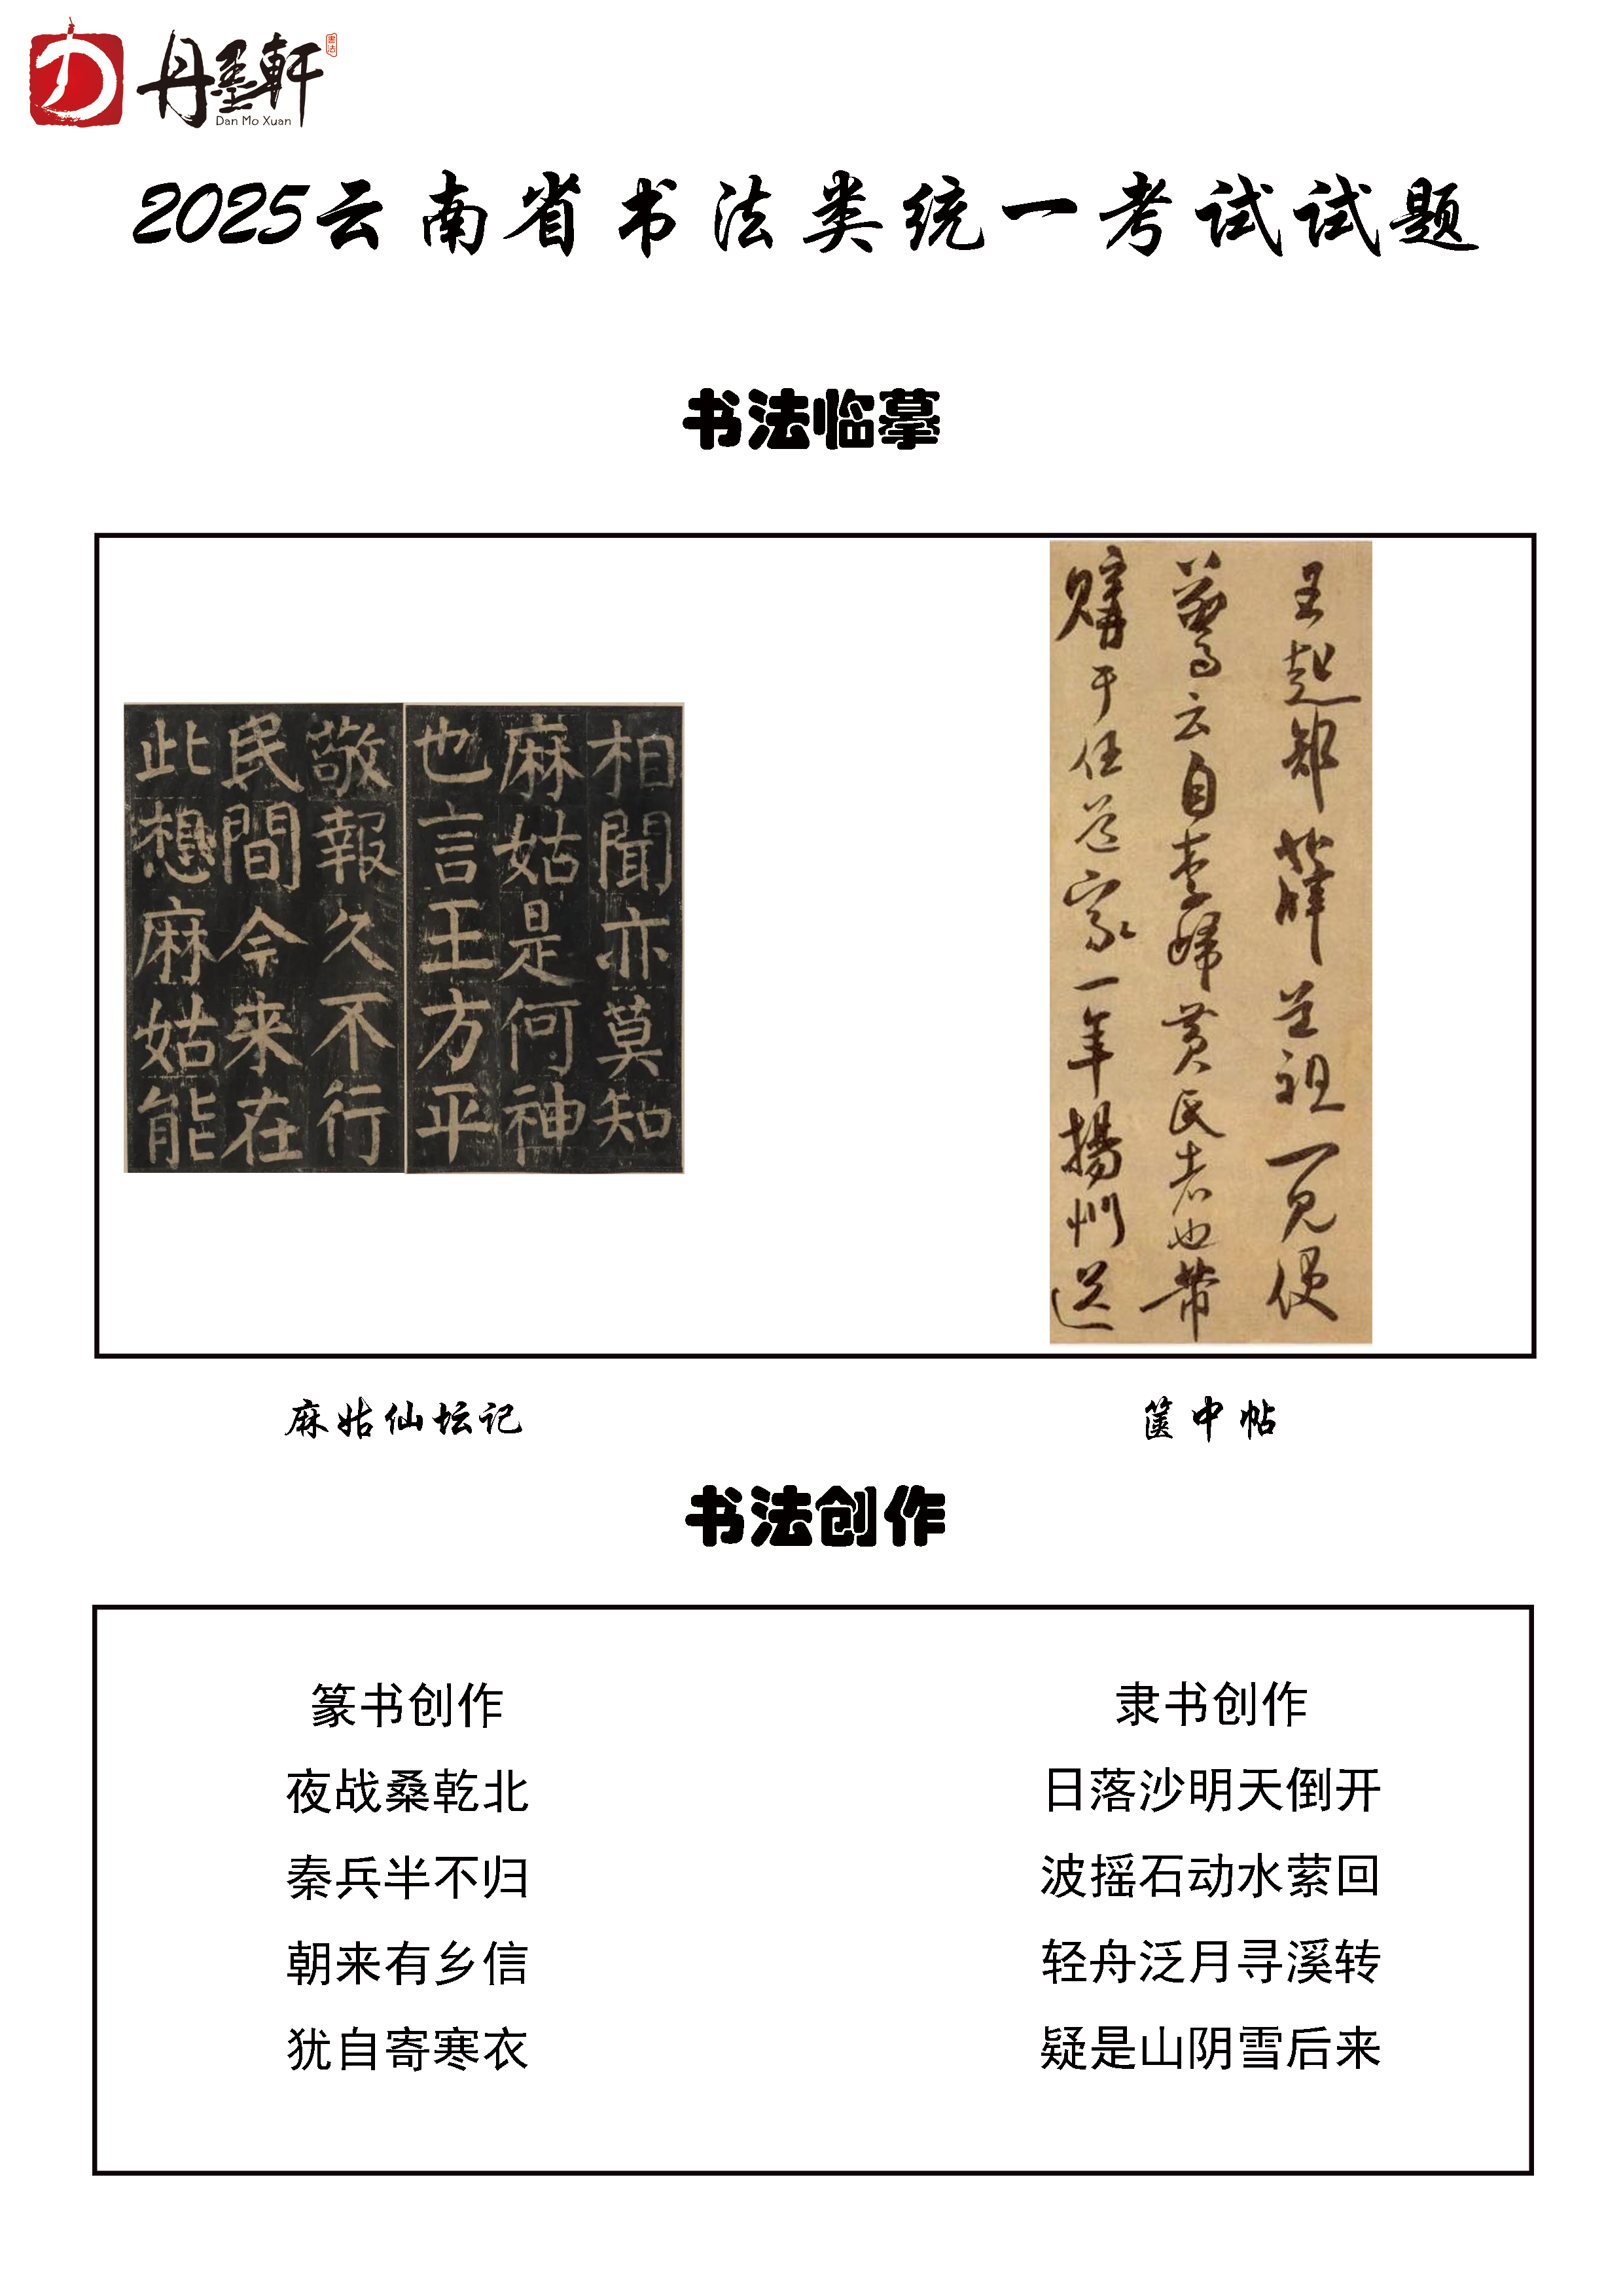 丹墨軒
書法
Dan Mo Xuan
2025云南省书法类统一考试试题
书法临摹
相聞亦莫知
麻姑是何神
也言王方平
敬報久不行
民間今来在
此想麻姑能
王起部薛道祖一見便
驚云自李歸黃氏者也芾
購于任道家一年揚州送
麻姑仙坛记
箧中帖
书法创作
篆书创作
夜战桑乾北
秦兵半不归
朝来有乡信
犹自寄寒衣
隶书创作
日落沙明天倒开
波摇石动水萦回
轻舟泛月寻溪转
疑是山阴雪后来